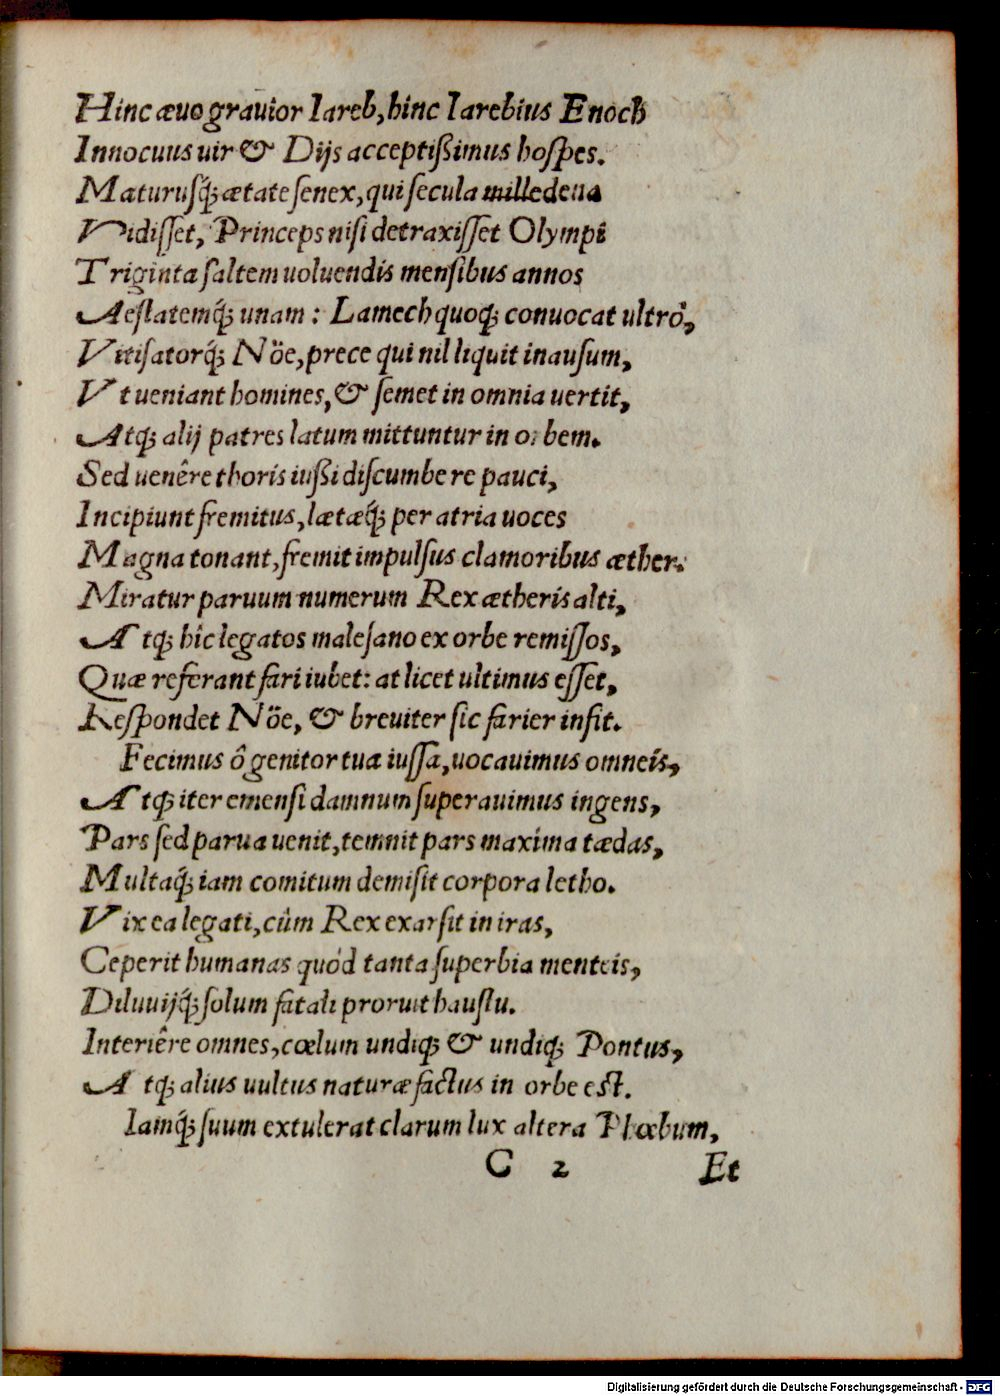 Hinc æuo grauior Iareb, hinc Iarebius Enoch
Innocuus uir & Dijs acceptißimus hoſpes.
Maturusq́; ætate ſenex, qui ſecula milledena
Vidiſſet, Princeps niſi detraxiſſet Olympi
Triginta ſaltem uoluendis menſibus annos
Aeſtatemq́; unam : Lamech quoq; conuocat ultrò,
Vitiſatorq́; Nöe, prece qui nil liquit inauſum,
Vt ueniant homines, & ſemet in omnia uertit,
Atq; alij patres latum mittuntur in orbem.
Sed uenêre thoris iußi diſcumbere pauci,
Incipiunt fremitus, lætæq́; per atria uoces
Magna tonant, fremit impulſus clamoribus æther.
Miratur paruum numerum Rex ætheris alti,
Atq; hîc legatos maleſano ex orbe remiſſos,
Quæ referant fari iubet: at licet ultimus eſſet,
Reſpondet Nöe, & breuiter ſic farier inſit.
Fecimus ô genitor tua iuſſa, uocauimus omneis,
Atq; iter emenſi damnum ſuperauimus ingens,
Pars ſed parua uenit, temnit pars maxima tædas,
Multaq́; iam comitum demiſit corpora letho.
Vix ea legati, cûm Rex exarſit in iras,
Ceperit humanas quòd tanta ſuperbia menteis,
Diluuijq́; ſolum fatali proruit hauſtu.
Interiêre omnes, cœlum undiq; & undiq; Pontus,
Atq; alius uultus naturæ factus in orbe est.
Iamq́; ſuum extulerat clarum lux altera Phœbum,
C 2 Et
Digitalisierung gefördert durch die Deutsche Forschungsgemeinschaft - DFG